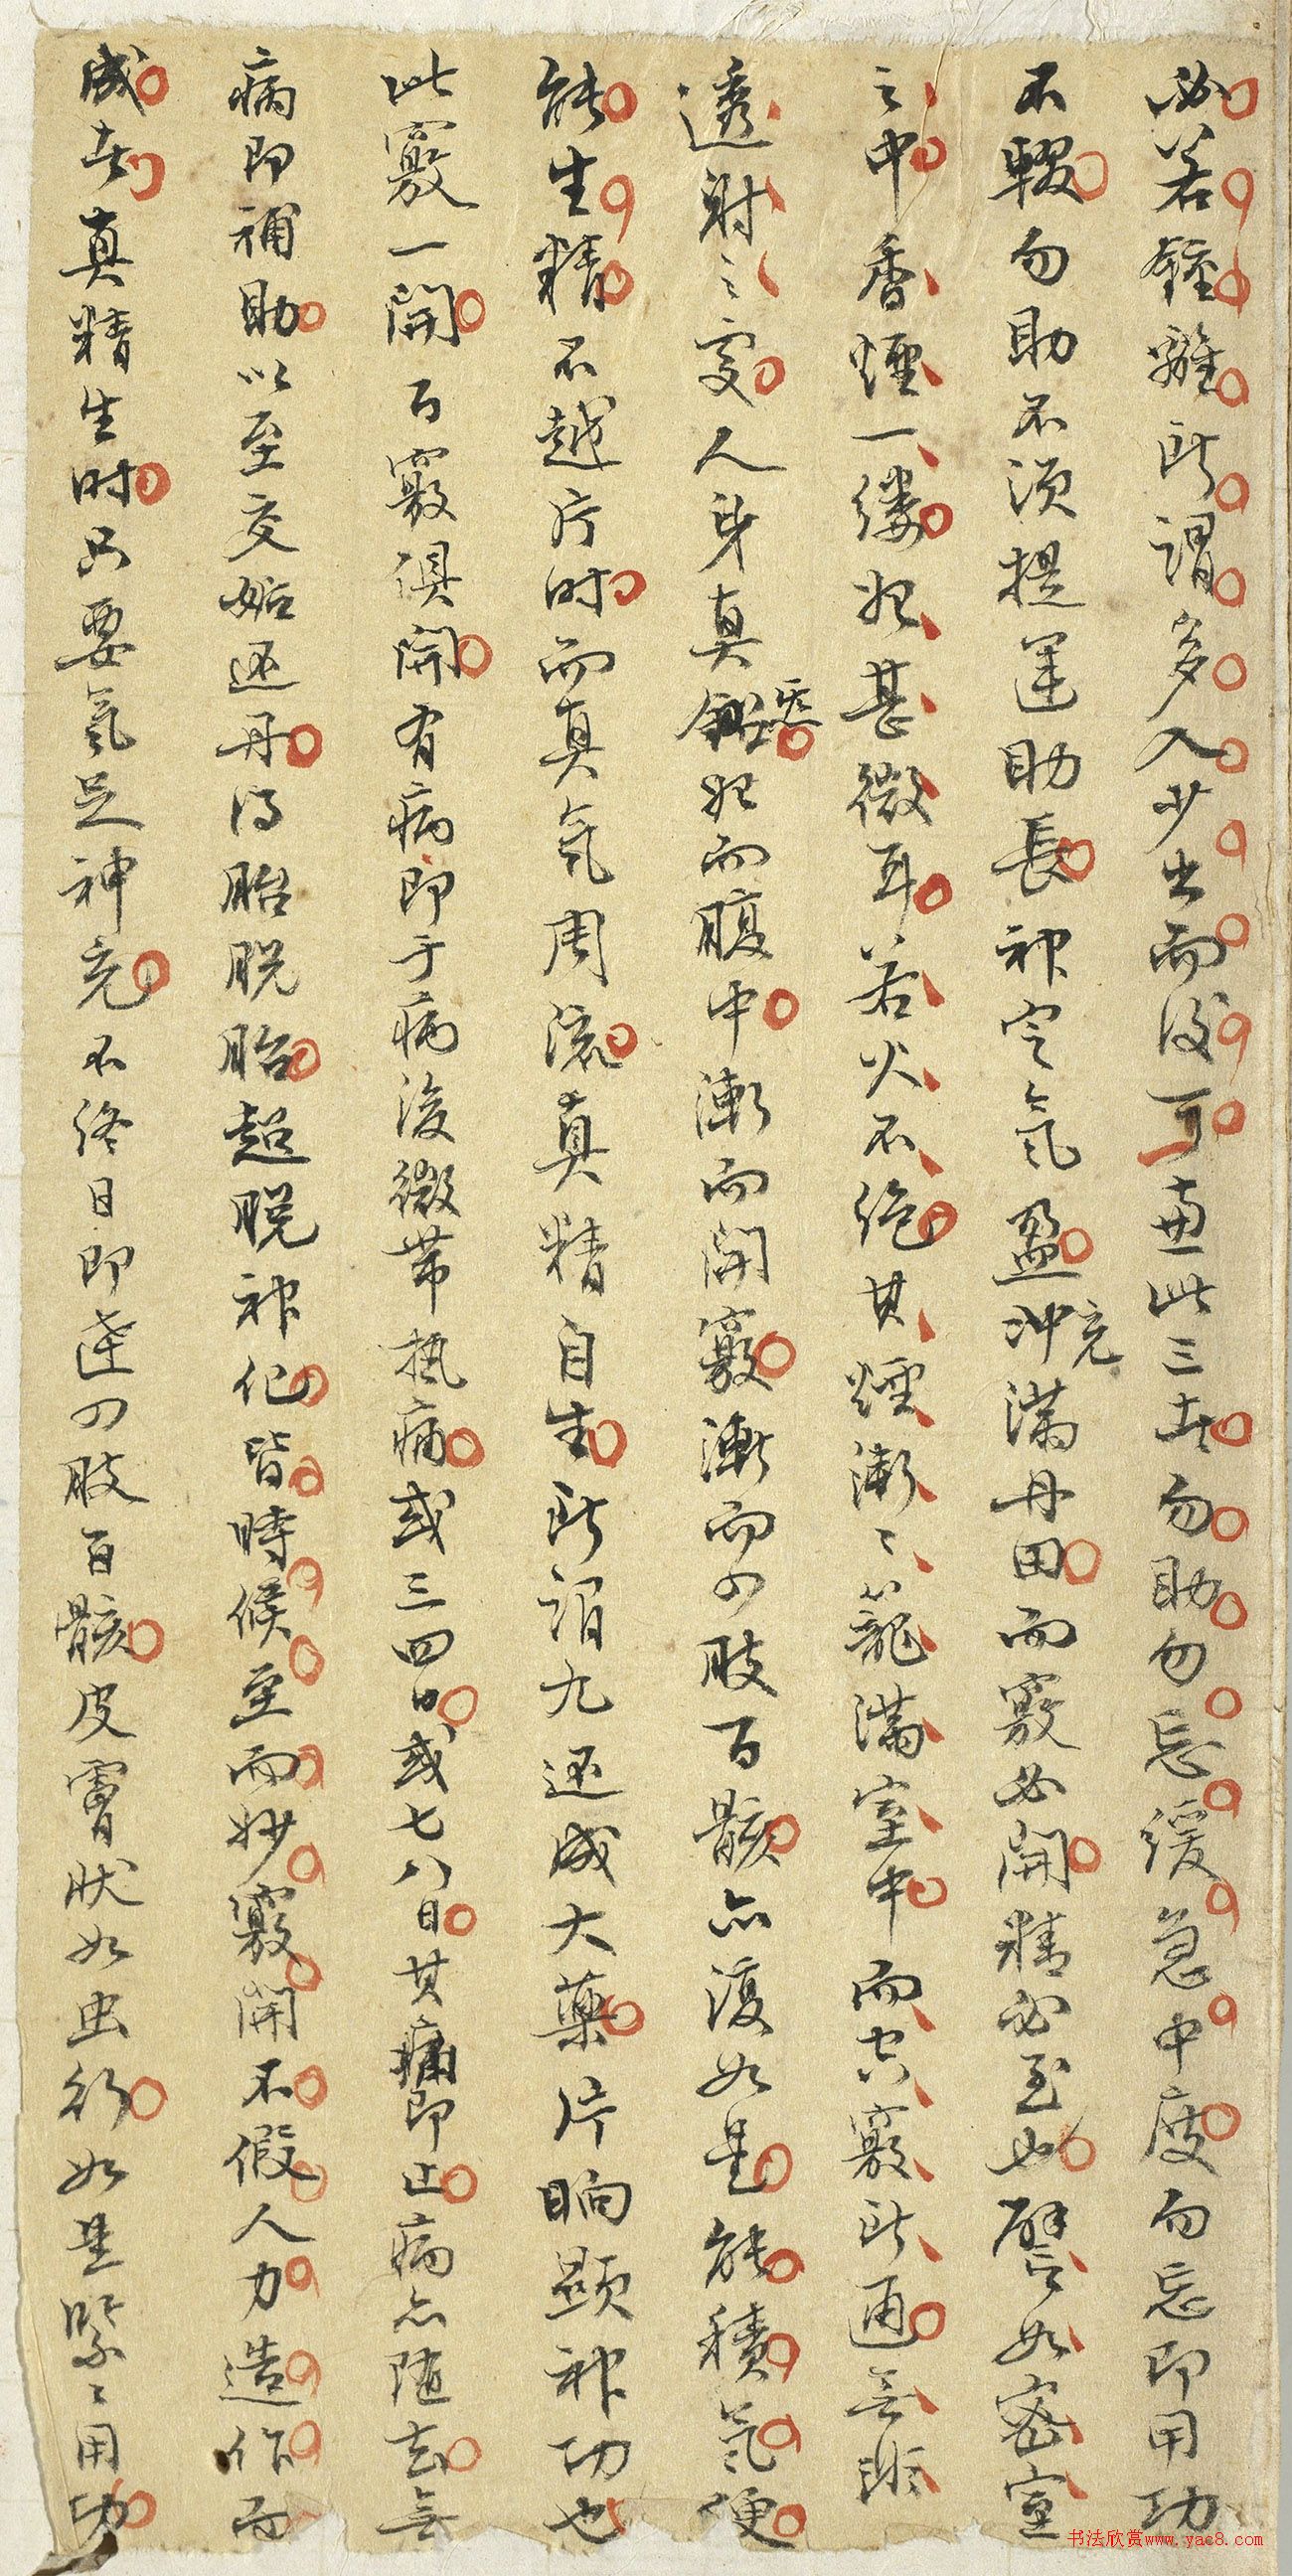 必若鍾離所謂多入少出而後可蓋此三者勿助勿忘緩急中度勿忘即用功
不輟勿助不須提運助長神定氣盈沖充滿丹田而竅必開精必至也譬如密室
之中香煙一縷始甚微耳若火不絕其煙漸〻籠滿室中而穴竅所通無非
透射之處人身真鉛炁始而腹中漸而開竅漸而四肢百骸亦復如是能積氣便
能生精不越片時而真氣周流真精自生所謂九還成大藥片晌顯神功也
此竅一開百竅俱開有病即于病後微帶熱痛或三四日或七八日其痛即止病亦隨去無
病即補助以至交姤還丹得胎脫胎超脫神化皆時候至而妙竅開不假人力造作而
成者真精生時只要氣足神充不終日即達四肢百骸皮膚狀如虫行如是緊〻用功
书法欣赏www.yac8.com